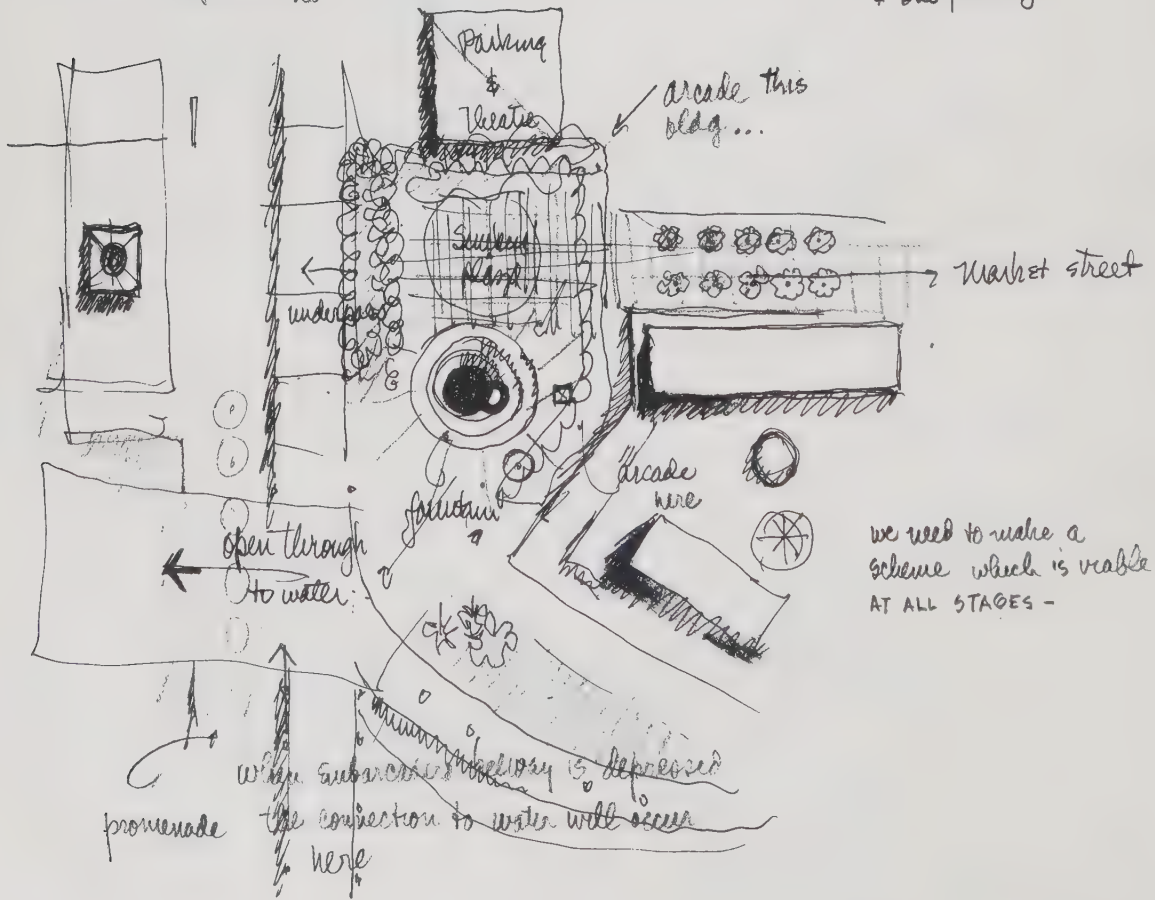 Parking
&
Theatre
arcade this
bldg...
Sunken
plaza
underpass
Market street
arcade
here
fountain
open through
to water
we need to make a
scheme which is viable
AT ALL STAGES -
when Embarcadero freeway is depressed
the connection to water will occur
here
promenade